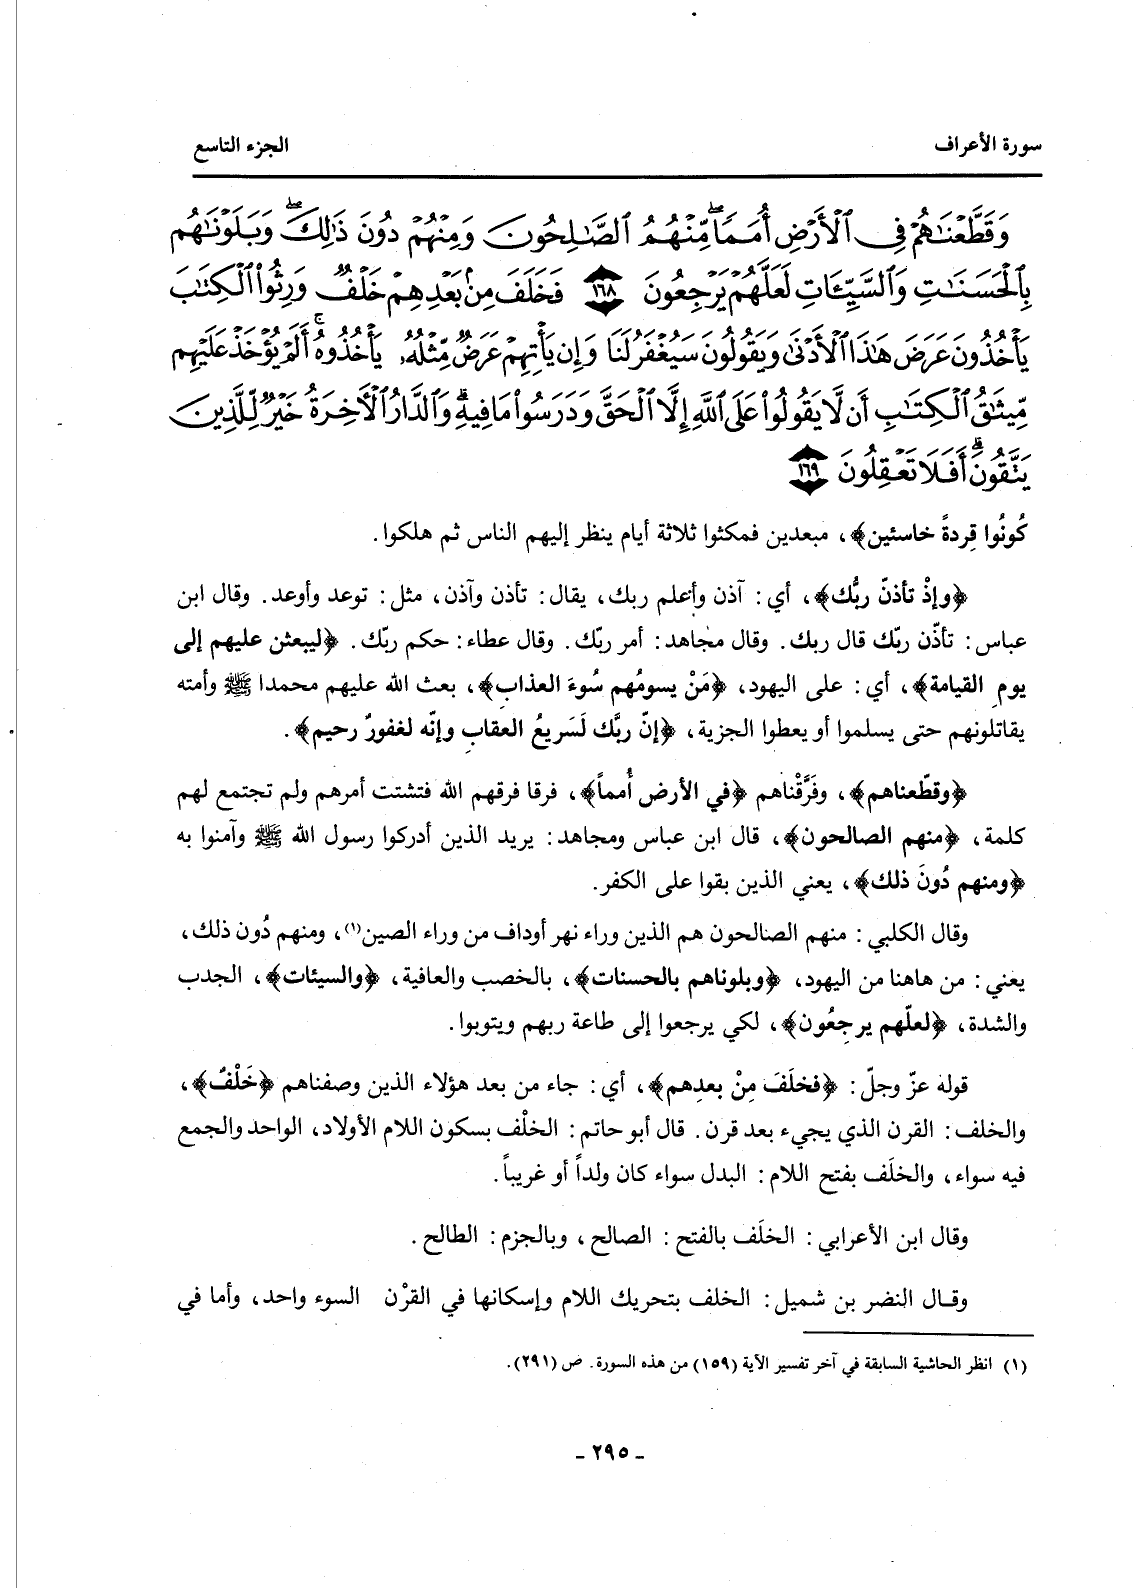 سورة الأعراف
الجزء التاسع
وَقَطَّعْنَاهُمْ فِي ٱلْأَرْضِ أُمَمًا ۖ مِّنْهُمُ ٱلصَّٰلِحُونَ وَمِنْهُمْ دُونَ ذَٰلِكَ ۖ وَبَلَوْنَٰهُم
بِٱلْحَسَنَٰتِ وَٱلسَّيِّـَٔاتِ لَعَلَّهُمْ يَرْجِعُونَ ١٦٨ فَخَلَفَ مِنۢ بَعْدِهِمْ خَلْفٌ وَرِثُوا۟ ٱلْكِتَٰبَ
يَأْخُذُونَ عَرَضَ هَٰذَا ٱلْأَدْنَىٰ وَيَقُولُونَ سَيُغْفَرُ لَنَا وَإِن يَأْتِهِمْ عَرَضٌ مِّثْلُهُۥ يَأْخُذُوهُ ۚ أَلَمْ يُؤْخَذْ عَلَيْهِم
مِّيثَٰقُ ٱلْكِتَٰبِ أَن لَّا يَقُولُوا۟ عَلَى ٱللَّهِ إِلَّا ٱلْحَقَّ وَدَرَسُوا۟ مَا فِيهِ ۗ وَٱلدَّارُ ٱلْـَٔاخِرَةُ خَيْرٌ لِّلَّذِينَ
يَتَّقُونَ ۗ أَفَلَا تَعْقِلُونَ ١٦٩
كُونُوا قِردةً خاسئين﴾، مبعدين فمكثوا ثلاثة أيام ينظر إليهم الناس ثم هلكوا.
﴿وإذْ تأذنّ ربُّك﴾، أي: آذن وأعلم ربك، يقال: تأذن وآذن، مثل: توعد وأوعد. وقال ابن
عباس: تأذّن ربّك قال ربك. وقال مجاهد: أمر ربّك. وقال عطاء: حكم ربّك. ﴿ليبعثن عليهم إلى
يومِ القيامة﴾، أي: على اليهود، ﴿مَنْ يسومُهم سُوءَ العذاب﴾، بعث الله عليهم محمدا ﷺ وأمته
يقاتلونهم حتى يسلموا أو يعطوا الجزية، ﴿إنّ ربَّك لَسَريعُ العقابِ وإنّه لغفورٌ رحيم﴾.
﴿وقطّعناهم﴾، وفَرَّقْناهم ﴿في الأرض أُمماً﴾، فرقا فرقهم الله فتشتت أمرهم ولم تجتمع لهم
كلمة، ﴿منهم الصالحون﴾، قال ابن عباس ومجاهد: يريد الذين أدركوا رسول الله ﷺ وآمنوا به
﴿ومنهم دُونَ ذلك﴾، يعني الذين بقوا على الكفر.
وقال الكلبي: منهم الصالحون هم الذين وراء نهر أوداف من وراء الصين(١)، ومنهم دُون ذلك،
يعني: من هاهنا من اليهود، ﴿وبلوناهم بالحسنات﴾، بالخصب والعافية، ﴿والسيئات﴾، الجدب
والشدة، ﴿لعلّهم يرجِعُون﴾، لكي يرجعوا إلى طاعة ربهم ويتوبوا.
قوله عزّ وجلّ: ﴿فخلَفَ مِنْ بعدِهم﴾، أي: جاء من بعد هؤلاء الذين وصفناهم ﴿خَلْفٌ﴾،
والخلف: القرن الذي يجيء بعد قرن. قال أبو حاتم: الخلْف بسكون اللام الأولاد، الواحد والجمع
فيه سواء، والخلَف بفتح اللام: البدل سواء كان ولداً أو غريباً.
وقال ابن الأعرابي: الخلَف بالفتح: الصالح، وبالجزم: الطالح.
وقال النضر بن شميل: الخلف بتحريك اللام وإسكانها في القرْن السوء واحد، وأما في
(١) انظر الحاشية السابقة في آخر تفسير الآية (١٥٩) من هذه السورة. ص (٢٩١).
- ٢٩٥ -